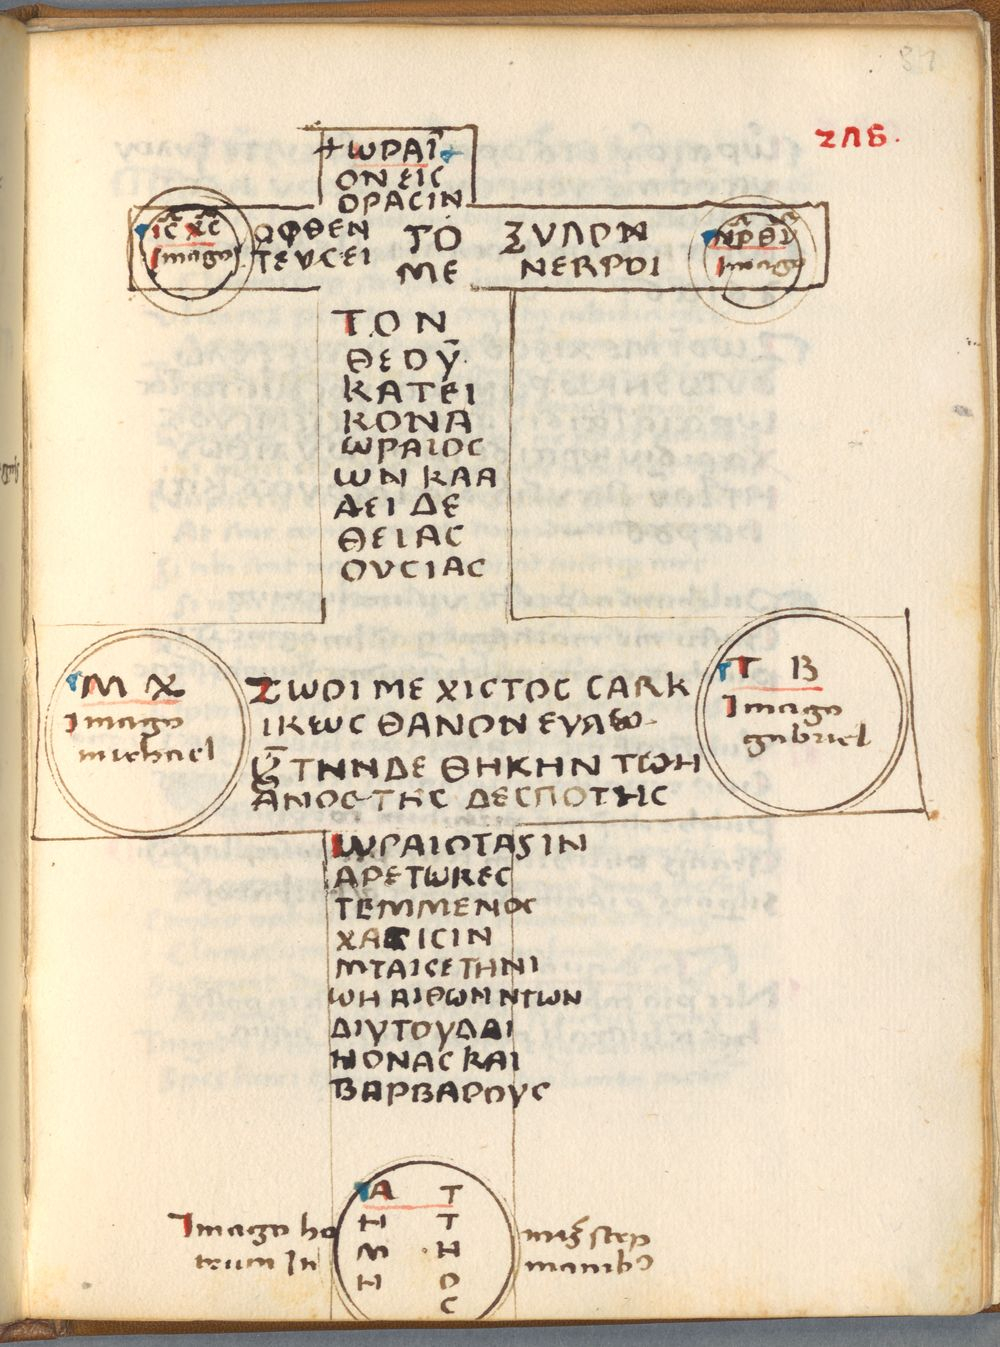 ϨΛϚ.
+ ѠΡΑΙ
ΟΝ ΕΙϹ
ΟΡΑϹΙΝ
ΙϹ ΧϹ
Imago
ΟΦΘΕΝ
ΤΕΥϹΕΙ
ΤΟ
ΜΕ
ΞΥΛΟΝ
ΝΕΚΡΟΙ
Imago
ΤΟΝ
ΘΕΟΥ
ΚΑΤΕΙ
ΚΟΝΑ
ѠΡΑΙΟϹ
ѠΝ ΚΑΛ
ΛΕΙ ΔΕ
ΘΕΙΑϹ
ΟΥϹΙΑϹ
Μ Χ
Imago
michael
ΖѠΟΙ ΜΕ ΧΙϹΤΟϹ ϹΑRΚ
ΙΚѠϹ ΘΑΝΟΝ ΕΥΛѠ
ΤΗΝΔΕ ΘΗΚΗΝ ΤѠΗ
ΑΝΟϹ ΤΗϹ ΔΕϹΠΟΤΗϹ
Γ Β
Imago
gabriel
ѠΡΑΙΟΤΑS ΙΝ
ΑΡΕΤѠΚΕϹ
ΤΕΜΜΕΝΟϹ
ΧΑΡΙϹΙΝ
ΜΤΑΙϹΕΤΗΝΙ
ѠΗ ΑΙΘѠΝ ΝΤѠΝ
ΔΙΥΤΟΥΔΑΙ
ΗΟΝΑϹ ΚΑΙ
ΒΑΡΒΑΡΟΥϹ
Α Τ
Η Τ
Μ Η
Η Ο
Ϲ
Imago ho
trum In
manibꝰ